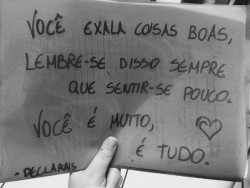 VOCÊ EXALA COISAS BOAS,
LEMBRE-SE DISSO SEMPRE
QUE SENTIR-SE POUCO.
VOCÊ É MUITO,
É TUDO.
- DECLARAS